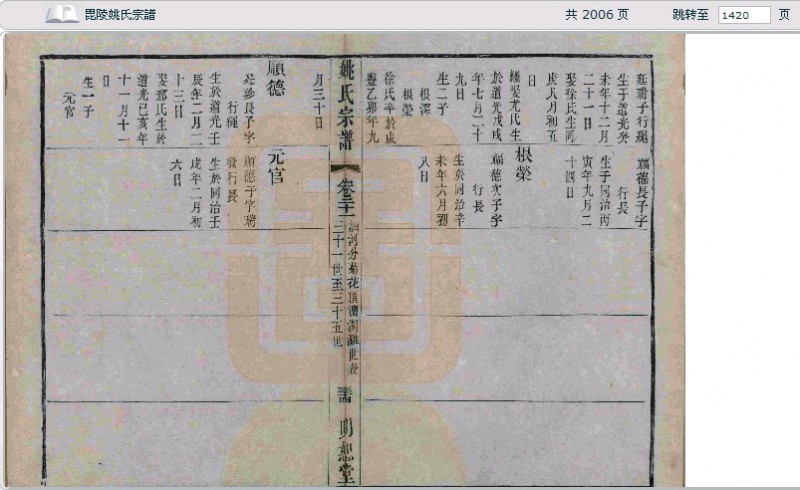 毘陵姚氏宗譜
共 2006 页
跳转至 1420 页
生于道光癸
未年十二月
二十一日
娶徐氏生同
庚八月初五
日
繼娶尤氏生
於道光戊戌
年七月二十
九日
生二子
根深
根榮
徐氏卒於咸
豐乙卯年九
福德長子字
行長
生于同治丙
寅年九月二
十四日
根榮
福德次子字
行長
生於同治辛
未年六月初
八日
姚氏宗譜
卷二十二
三十一世至三十五世
明恕堂
月三十日
順德
長子字
行
生於道光壬
辰年二月二
十三日
娶邢氏生於
道光己亥年
十一月十一
日
生一子
元官
元官
順德子字瑞
發行長
生於同治壬
戌年二月初
六日